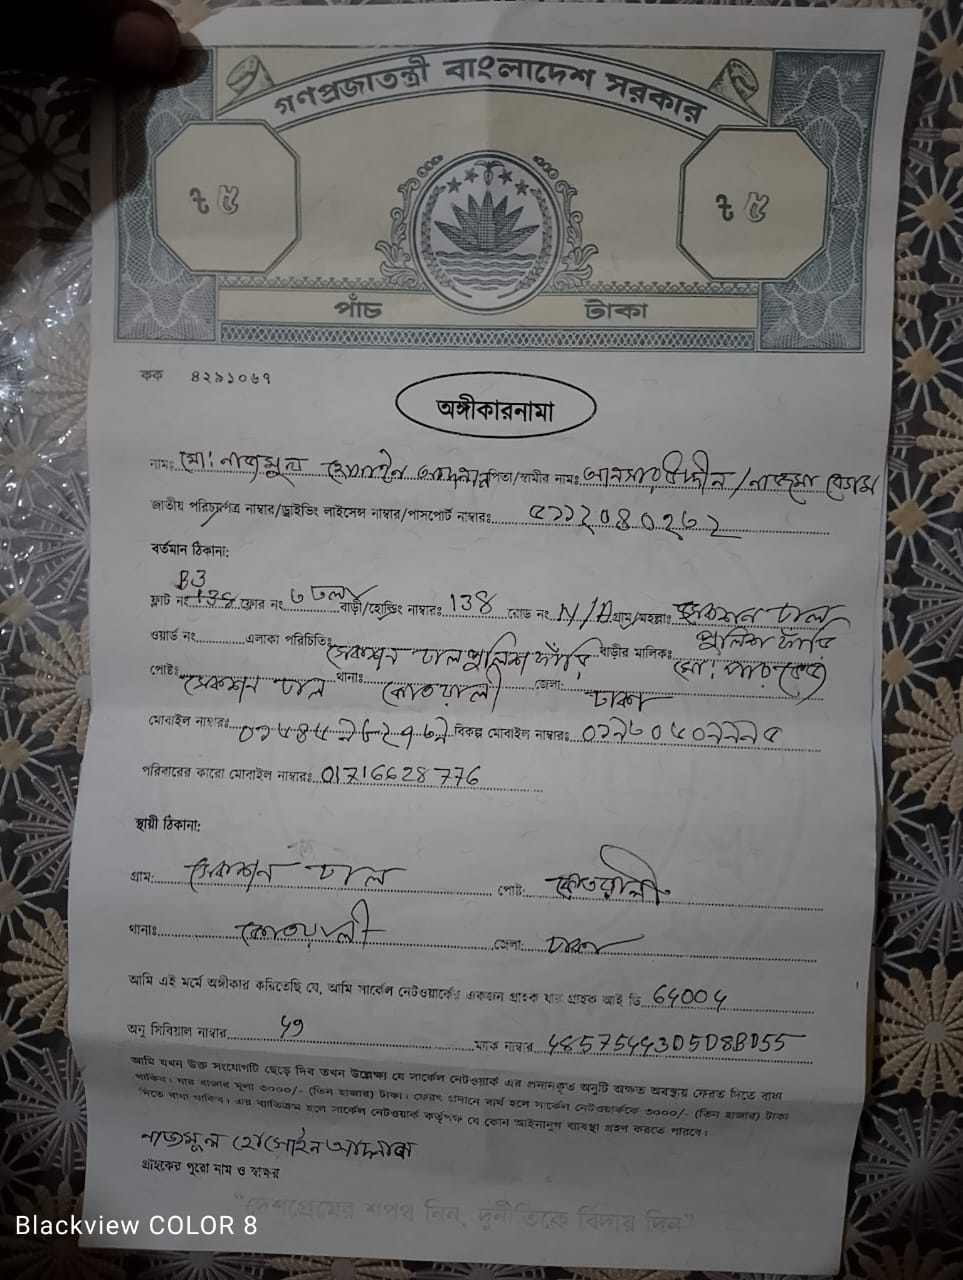 গণপ্রজাতন্ত্রী বাংলাদেশ সরকার
৳ ৫
৳ ৫
পাঁচ টাকা
কক ৪২৯১০৬৭
অঙ্গীকারনামা
নামঃ মো: নাজমুল হোসাইন পিতা/স্বামীর নামঃ আনসার উদ্দীন / নাজমা বেগম
জাতীয় পরিচয়পত্র নাম্বার/ড্রাইভিং লাইসেন্স নাম্বার/পাসপোর্ট নাম্বারঃ
বর্তমান ঠিকানা:
B3
ফ্লাট নং ফ্লোর নং ৬ তলা বাড়ী/হোল্ডিং নাম্বারঃ 138 রোড নং N/A গ্রাম/মহল্লাঃ সেকশন ঢাল
পুলিশ ফাঁড়ি
ওয়ার্ড নং এলাকা পরিচিতিঃ সেকশন ঢাল পুলিশ ফাঁড়ি বাড়ীর মালিকঃ মো:
পোষ্টঃ সেকশন ঢাল থানাঃ কোতয়ালী জেলা: ঢাকা
মোবাইল নাম্বারঃ বিকল্প মোবাইল নাম্বারঃ
পরিবারের কারো মোবাইল নাম্বারঃ 01716628776
স্থায়ী ঠিকানা:
গ্রাম: সেকশন ঢাল পোষ্ট: কোতয়ালী
থানাঃ কোতয়ালী জেলা: ঢাকা
আমি এই মর্মে অঙ্গীকার করিতেছি যে, আমি সার্কেল নেটওয়ার্কের একজন গ্রাহক যার গ্রাহক আই ডি 64004
অনু সিরিয়াল নাম্বার ৫৭ ম্যাক নাম্বার 48575443D5D8BD55
আমি যখন উক্ত সংযোগটি ছেড়ে দিব তখন উল্লেখ্য যে সার্কেল নেটওয়ার্ক এর প্রদানকৃত অনুটি অক্ষত অবস্থায় ফেরত দিতে বাধ্য
থাকিব। যার বাজার মূল্য ৩০০০/- (তিন হাজার) টাকা। ফেরৎ প্রদানে ব্যর্থ হলে সার্কেল নেটওয়ার্ককে ৩০০০/- (তিন হাজার) টাকা
দিতে বাধ্য থাকিব। এর ব্যতিক্রম হলে সার্কেল নেটওয়ার্ক কর্তৃপক্ষ যে কোন আইনানুগ ব্যবস্থা গ্রহণ করতে পারবে।
নাজমুল হোসাইন
গ্রাহকের পুরো নাম ও স্বাক্ষর
“দেশপ্রেমের শপথ নিন, দুর্নীতিকে বিদায় দিন”
Blackview COLOR 8